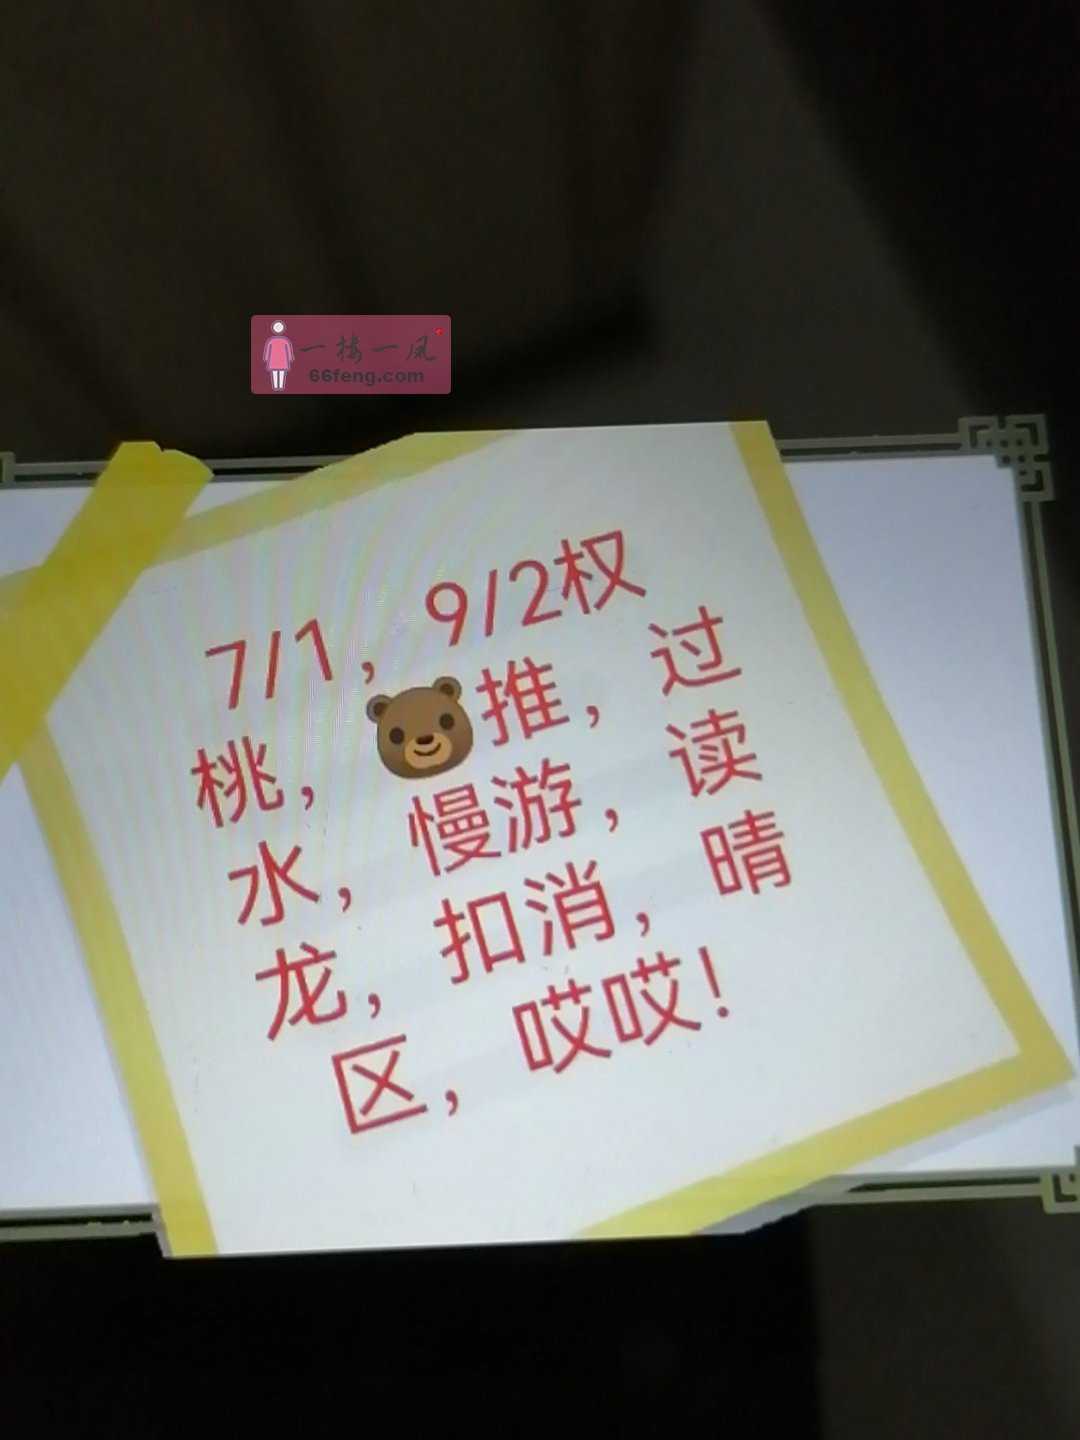 一楼一凤
66feng.com
7/1，9/2权
桃，🐻推，过
水，慢游，读
龙，扣消，晴
区，哎哎！